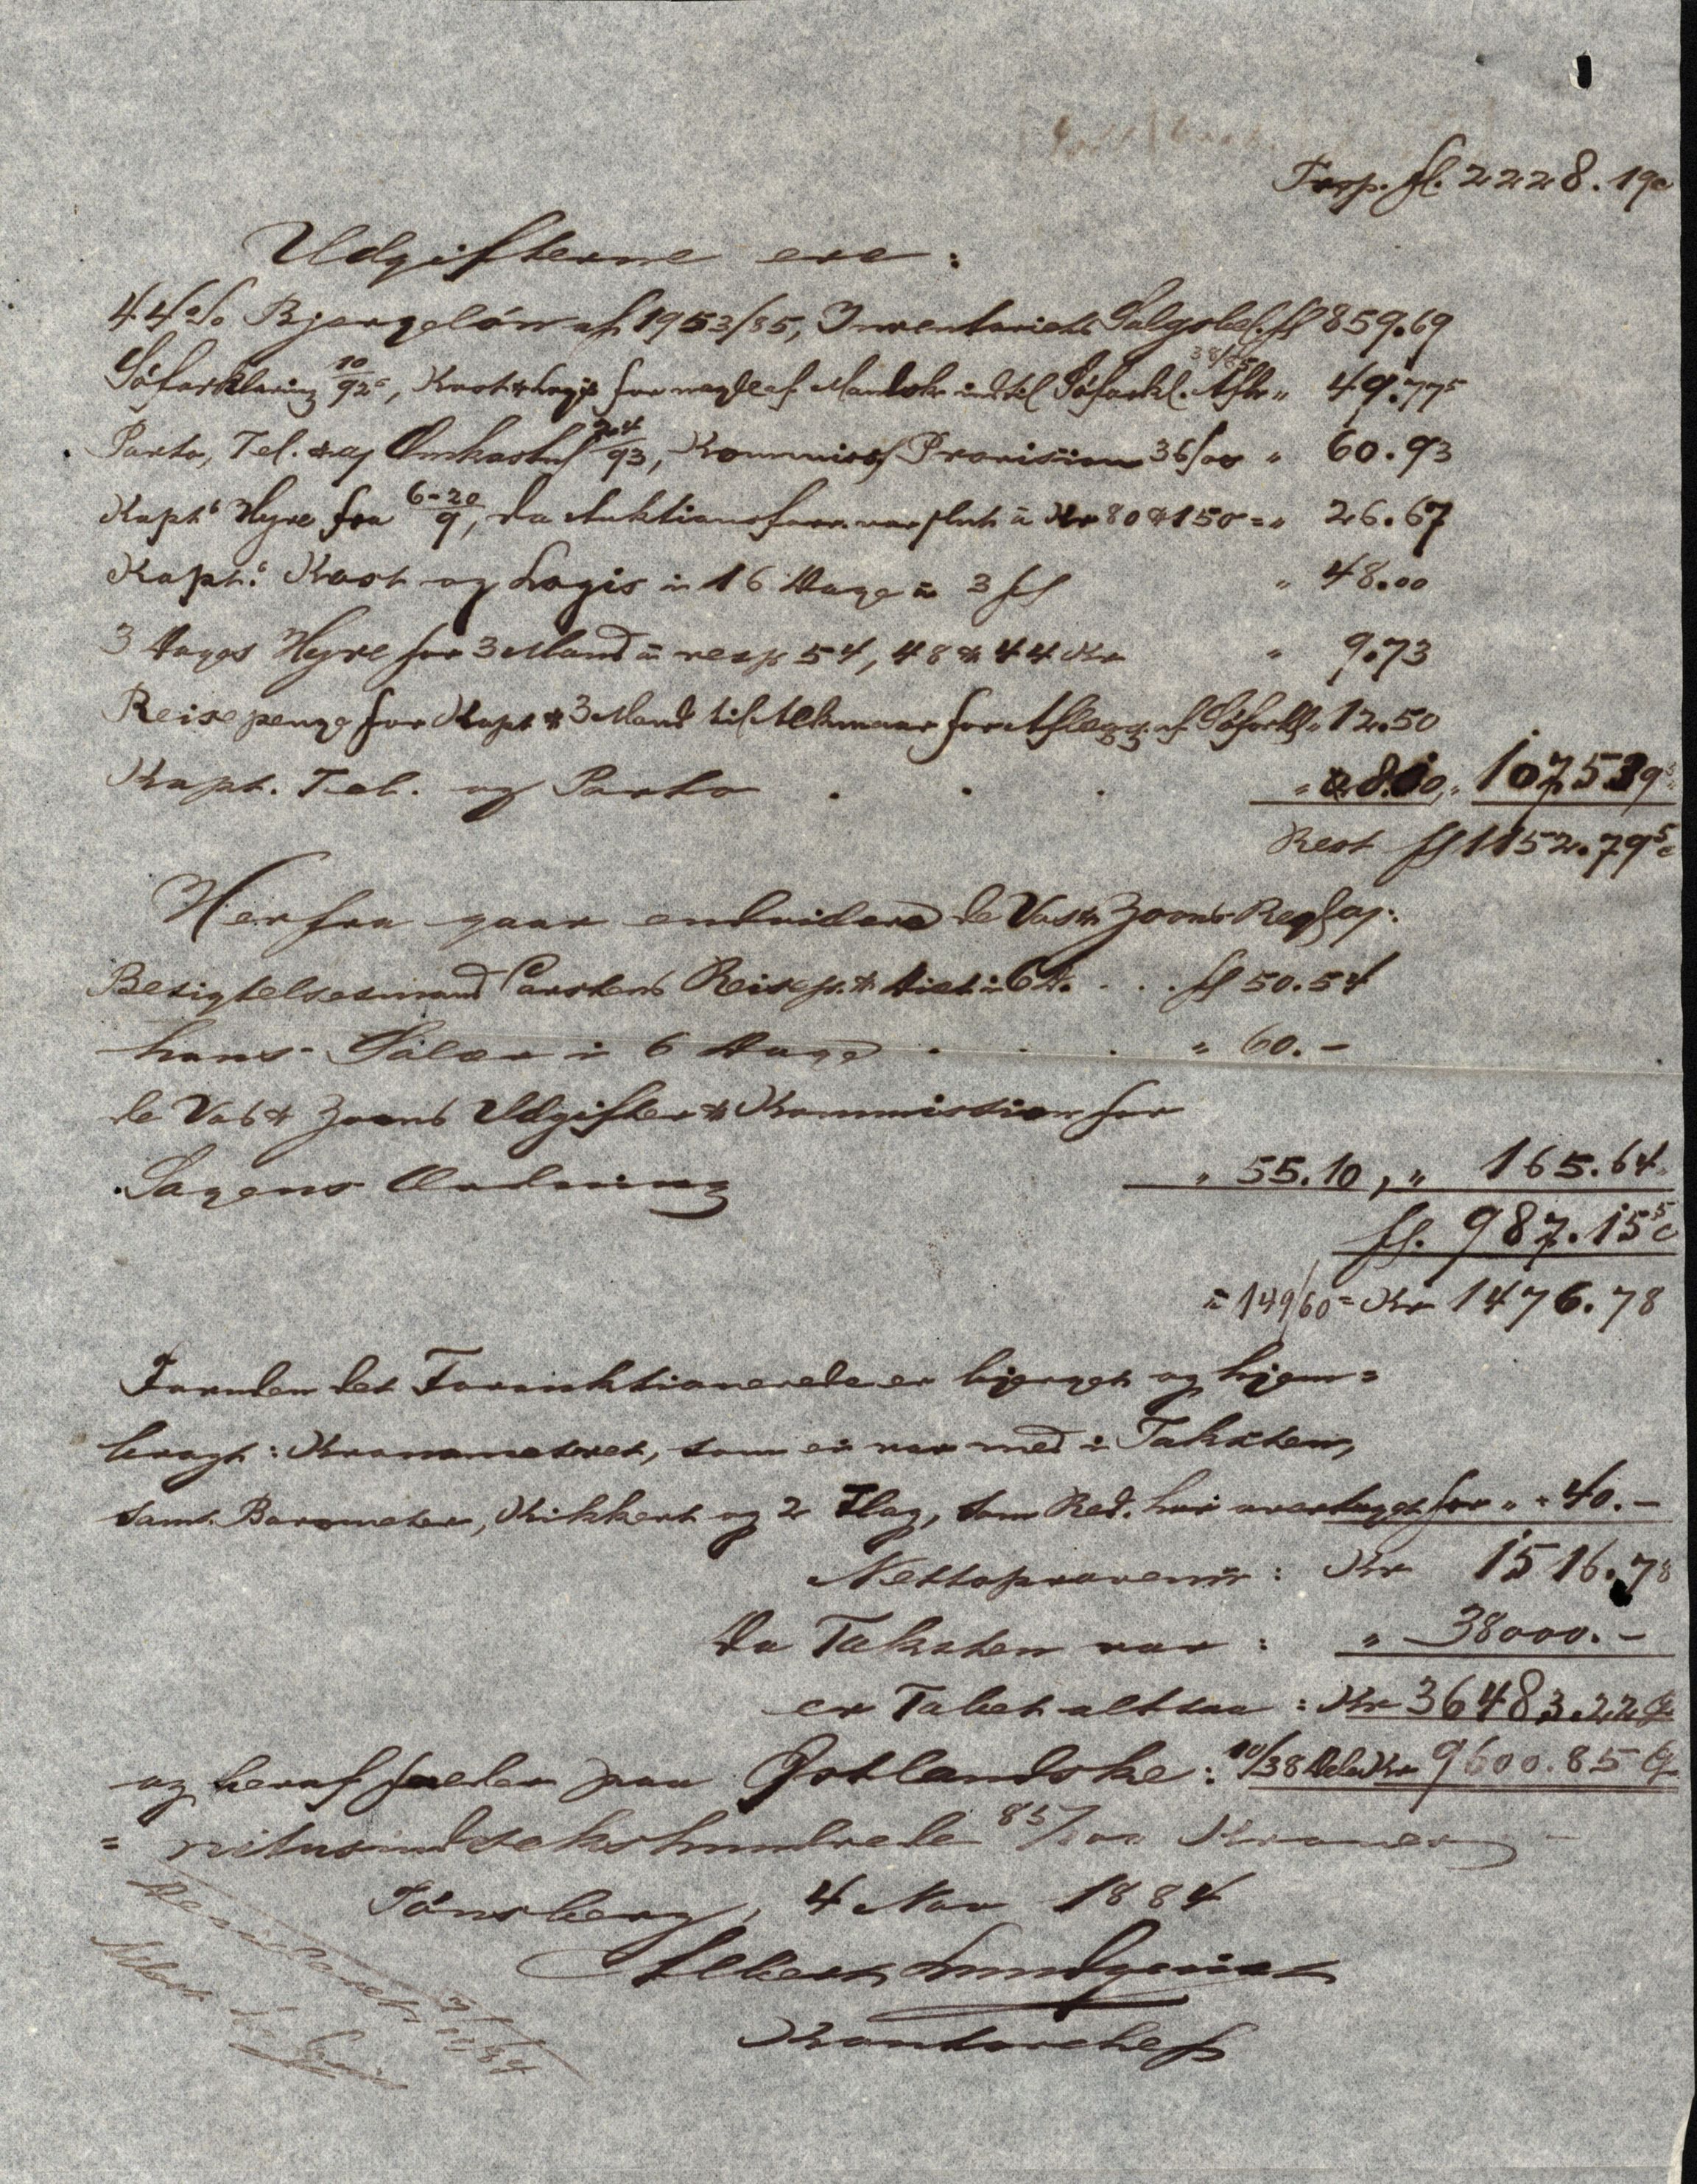 Trsp. fl. 2228.19c
Udgifterne ere:
44% Bjergelön af 1953/85, Inventariets Salgsbel. fl 859.69
Söforklaring 10/92⁵, Kost & Logis for af Mandsk. indtil Söforkl. Afl. 38/85 „ 49.77⁵
Porto, Tel. og Omkostn. 93, Provision 36/00 „ 60.93
Kaptˢ Hyre fra 6-20/9, da Auktionsforr. var slut à Kr 80 à 150 = „ 26.67
Kapt.ˢ Kost og Logis i 16 Dage à 3 fl „ 48.00
3 Dages Hyre for 3 Mand à resp 54, 48 & 44 Kr „ 9.73
Reisepenge for Kapt & 3 Mand til Alkmaar for Aflegg. af Söforkl „ 12.50
Kapt. Tel. og Porto . . . „ 8.10, „ 1075.39⁵
Rest fl 1152.79⁵c
Herfra gaar endvidere de Vos & Zoons Regng:
Besigtelsesmand Carstens Reisep. & Diæt i 6 D. . . . fl 50.54
hans Salær i 6 Dage . . . „ 60.-
de Vos & Zoons Udgifter & Kommission for
Sagens Ordning „ 55.10, „ 165.64
fl. 987.15⁵c
à 149/60 = Kr 1476.78
Foruden det Forauktionerede er bjerget og hjem=
bragt: Kronometeret, som ei var med i Taksten,
samt Barometer, Kikkert og 2 Flag, som Red. har overtaget for „ „ 40.-
Nettoprovenü: Kr 1516.78
Da Taksten var: „ 38000.-
er Tabet altsaa: Kr 36483.22
og heraf falder paa Östlandske: 10/38 Dele Kr 9600.85
= nitusindsekshundrede 85/100 Kroner
Tönsberg, 4 Nov 1884
Albert Lundqvist
Kontorchef